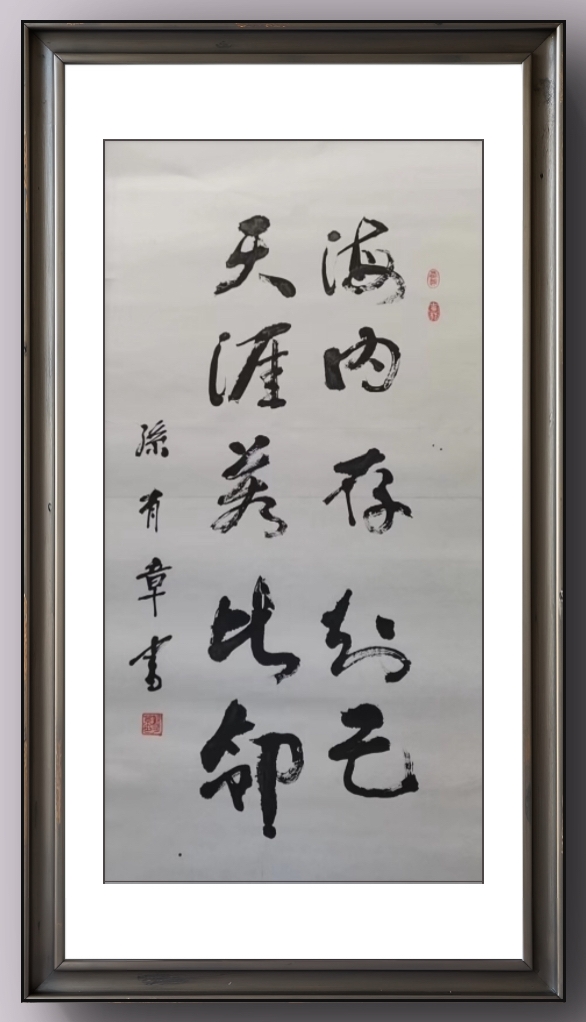 海内存知己
天涯若比邻
孫有章書